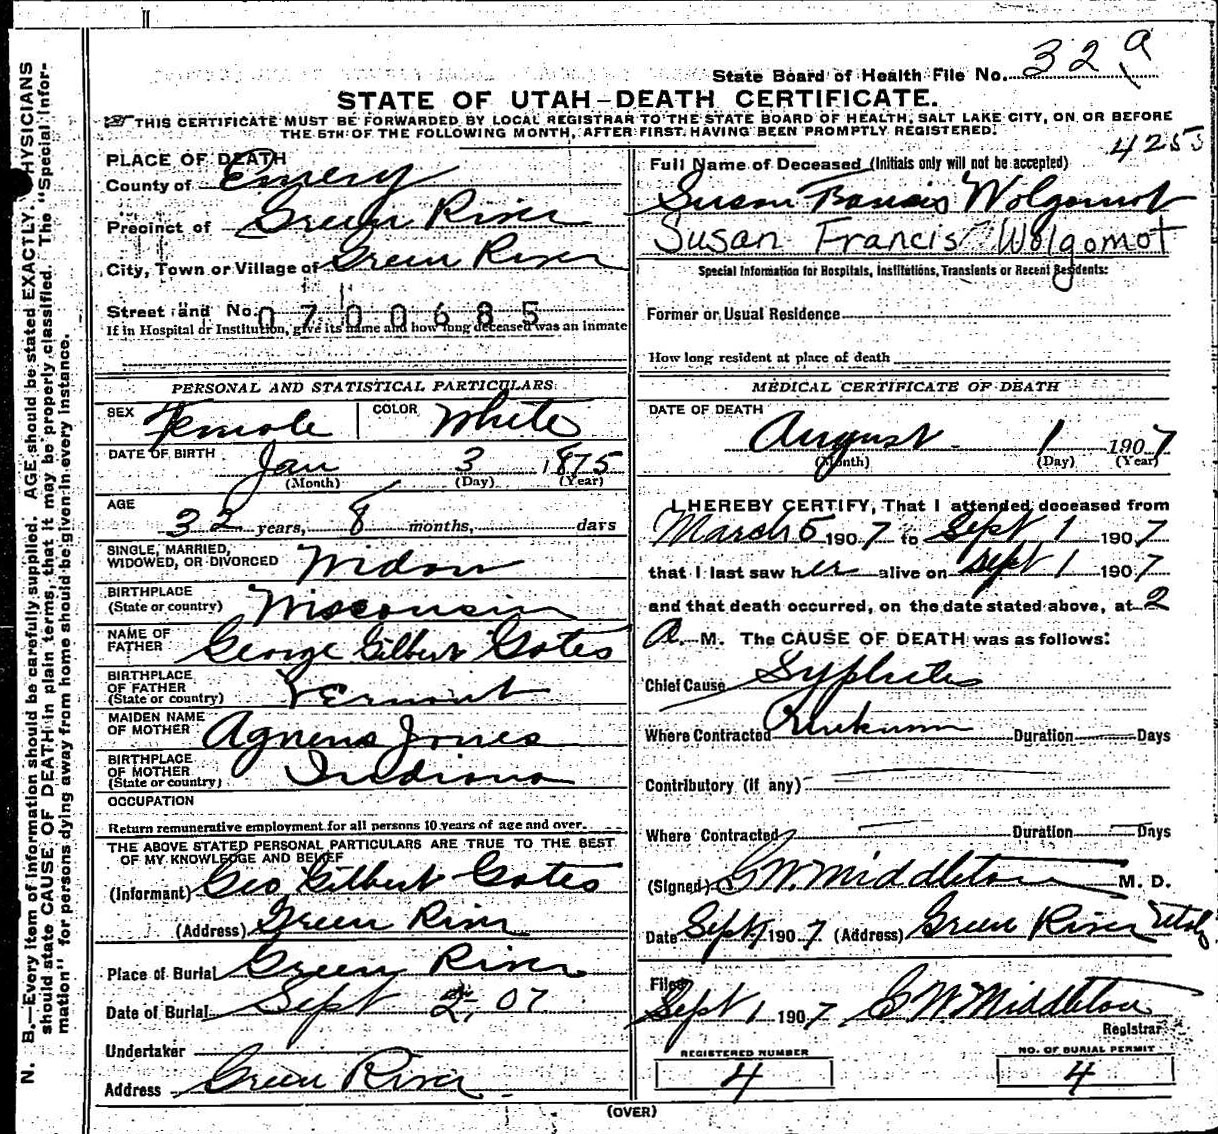 State Board of Health File No. 32 a
STATE OF UTAH—DEATH CERTIFICATE.
THIS CERTIFICATE MUST BE FORWARDED BY LOCAL REGISTRAR TO THE STATE BOARD OF HEALTH, SALT LAKE CITY, ON OR BEFORE
THE 5TH OF THE FOLLOWING MONTH, AFTER FIRST HAVING BEEN PROMPTLY REGISTERED.
4253
PLACE OF DEATH
County of Emery
Precinct of Green River
City, Town or Village of Green River
Street and No.
0700685
If in Hospital or Institution, give its name and how long deceased was an inmate
Full Name of Deceased (Initials only will not be accepted)
Susan Francis Wolgomot
Susan Francis Wolgomot
Special Information for Hospitals, Institutions, Transients or Recent Residents:
Former or Usual Residence
How long resident at place of death
PERSONAL AND STATISTICAL PARTICULARS
SEX Female COLOR White
DATE OF BIRTH Jan 3 1875
(Month) (Day) (Year)
AGE
32 years, 8 months, days
SINGLE, MARRIED,
WIDOWED, OR DIVORCED Widow
BIRTHPLACE
(State or country) Wisconsin
NAME OF
FATHER George Gilbert Gates
BIRTHPLACE
OF FATHER
(State or country) Vermont
MAIDEN NAME
OF MOTHER Agnens Jones
BIRTHPLACE
OF MOTHER
(State or country) Indiana
OCCUPATION
Return remunerative employment for all persons 10 years of age and over.
THE ABOVE STATED PERSONAL PARTICULARS ARE TRUE TO THE BEST
OF MY KNOWLEDGE AND BELIEF
(Informant) Geo Gilbert Gates
(Address) Green River
Place of Burial Green River
Date of Burial Sept 2, 07
Undertaker
Address Green River
MEDICAL CERTIFICATE OF DEATH
DATE OF DEATH
August 1 1907
(Month) (Day) (Year)
I HEREBY CERTIFY, That I attended deceased from
March 5 1907 to Sept 1 1907
that I last saw her alive on Sept 1 1907
and that death occurred, on the date stated above, at 2
A. M. The CAUSE OF DEATH was as follows:
Chief Cause Syphilis
Where Contracted Unknown Duration Days
Contributory (if any)
Where Contracted Duration Days
(Signed) G W Middleton M. D.
Date Sept 1 1907 (Address) Green River Utah
Filed
Sept 1 1907 G W Middleton
Registrar
REGISTERED NUMBER
4
NO. OF BURIAL PERMIT
4
(OVER)
N. B.—Every item of information should be carefully supplied. AGE should be stated EXACTLY. PHYSICIANS
should state CAUSE OF DEATH in plain terms, that it may be properly classified. The "Special Infor-
mation" for persons dying away from home should be given in every instance.